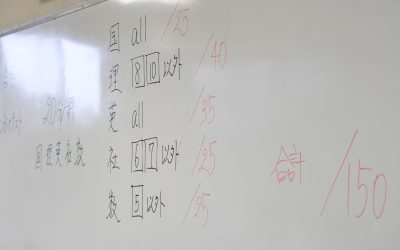 国 all /25
理 8 10 以外 /40
英 all /35
社 6 7 以外 /25
数 5 以外 /25
20分×4
国理英社数
合計 /150